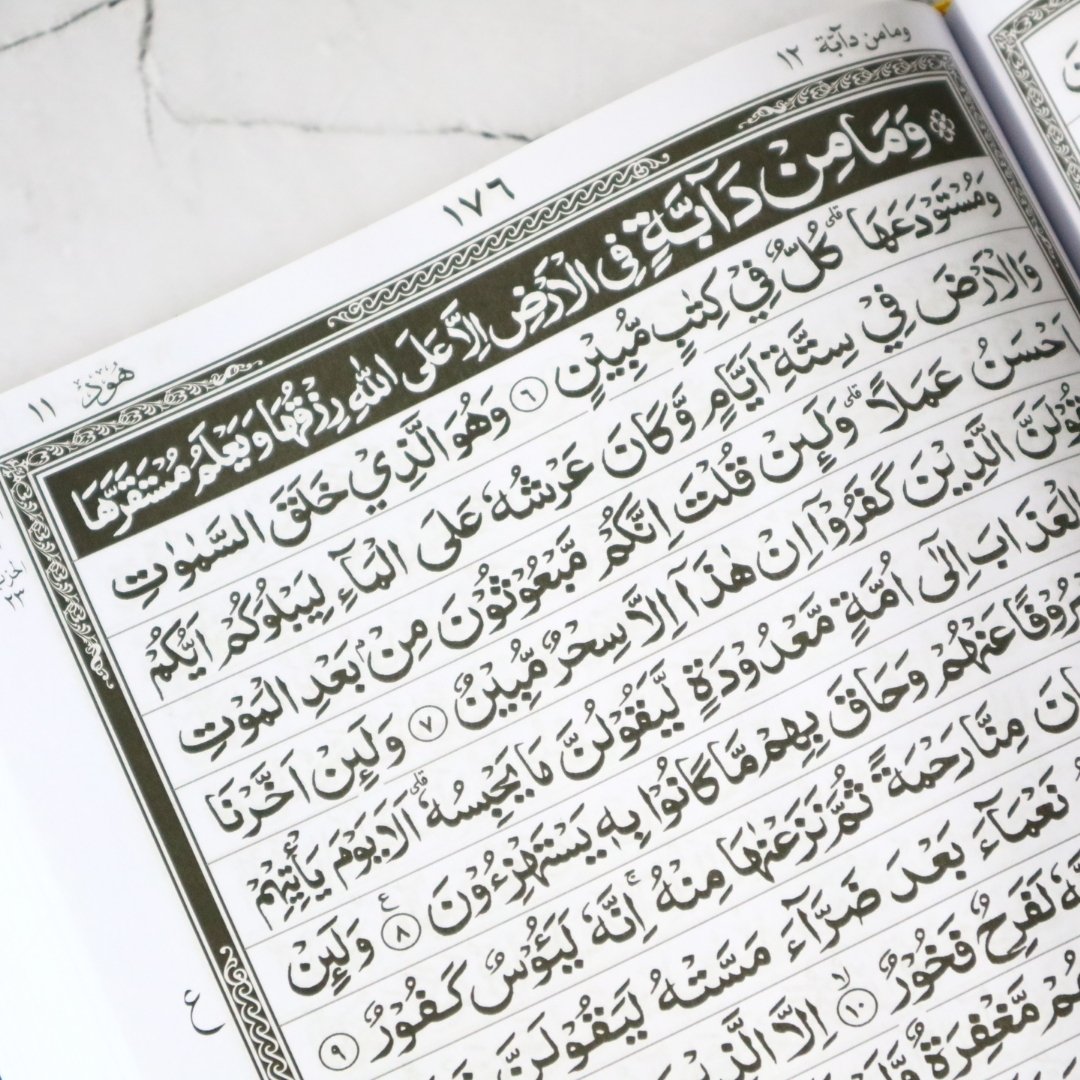 ومامن دآبّة ١٢
١٧٦
هُوْد ١١
۞ وَمَا مِنْ دَآبَّةٍ فِى الْاَرْضِ اِلَّا عَلَى اللّٰهِ رِزْقُهَا وَيَعْلَمُ مُسْتَقَرَّهَا
وَمُسْتَوْدَعَهَا ۗ كُلٌّ فِيْ كِتٰبٍ مُّبِيْنٍ ٦ وَهُوَ الَّذِيْ خَلَقَ السَّمٰوٰتِ
وَالْاَرْضَ فِيْ سِتَّةِ اَيَّامٍ وَّكَانَ عَرْشُهٗ عَلَى الْمَاۤءِ لِيَبْلُوَكُمْ اَيُّكُمْ
اَحْسَنُ عَمَلًا ۗ وَلَىِٕنْ قُلْتَ اِنَّكُمْ مَّبْعُوْثُوْنَ مِنْۢ بَعْدِ الْمَوْتِ
قُوْلَنَّ الَّذِيْنَ كَفَرُوْٓا اِنْ هٰذَآ اِلَّا سِحْرٌ مُّبِيْنٌ ٧ وَلَىِٕنْ اَخَّرْنَا
الْعَذَابَ اِلٰٓى اُمَّةٍ مَّعْدُوْدَةٍ لَّيَقُوْلُنَّ مَا يَحْبِسُهٗ ۗ اَلَا يَوْمَ يَأْتِيْهِمْ
رُوْفًا عَنْهُمْ وَحَاقَ بِهِمْ مَّا كَانُوْا بِهٖ يَسْتَهْزِءُوْنَ ٨ وَلَىِٕنْ
مِنَّا رَحْمَةً ثُمَّ نَزَعْنٰهَا مِنْهُ ۚ اِنَّهٗ لَيَـُٔوْسٌ كَفُوْرٌ ٩
نَعْمَاۤءَ بَعْدَ ضَرَّاۤءَ مَسَّتْهُ لَيَقُوْلَنَّ
لَفَرِحٌ فَخُوْرٌ ١٠ اِلَّا الَّذِيْنَ
مَّغْفِرَةٌ
ع